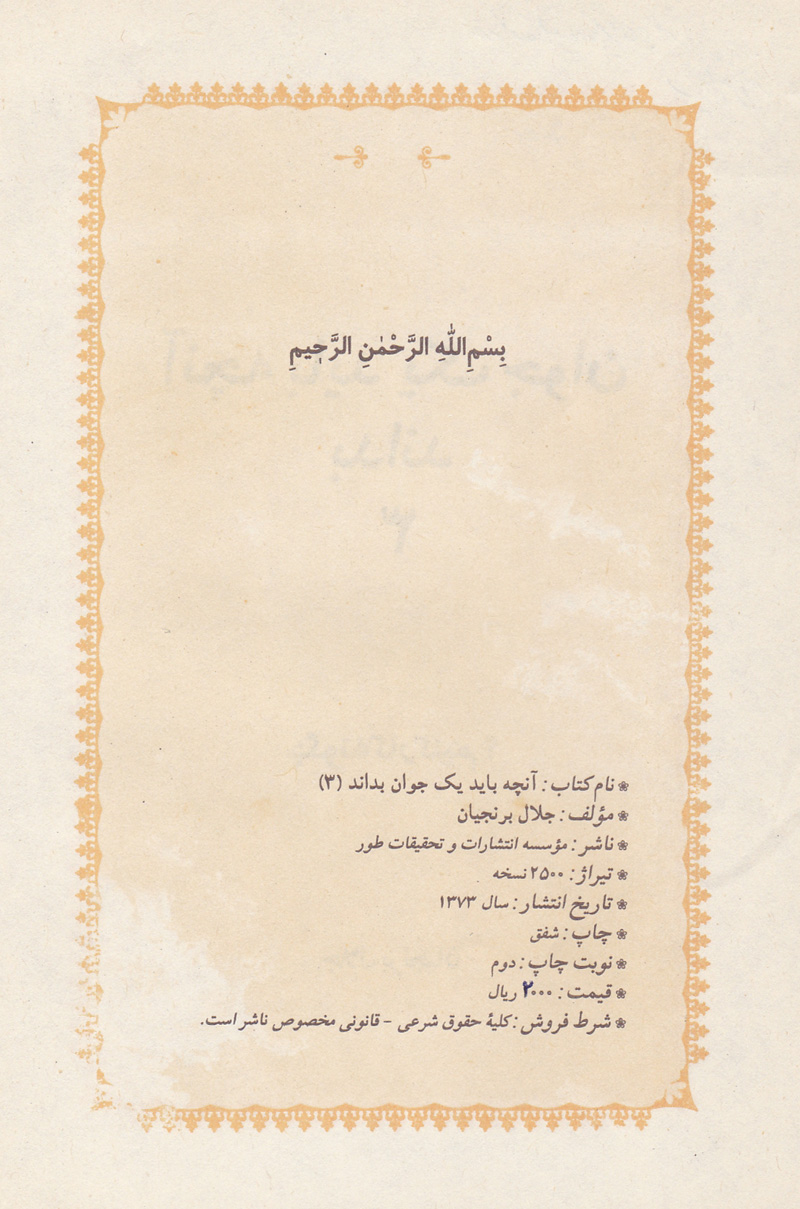 بِسْمِ‌اللّٰهِ الرَّحْمٰنِ الرَّحٖیمِ
❀ نام‌کتاب : آنچه باید یک جوان بداند (۳)
❀ مؤلف : جلال برنجیان
❀ ناشر : مؤسسه انتشارات و تحقیقات طور
❀ تیراژ : ۲۵۰۰ نسخه
❀ تاریخ انتشار : سال ۱۳۷۳
❀ چاپ : شفق
❀ نوبت چاپ : دوم
❀ قیمت : ۲۰۰۰ ریال
❀ شرط فروش : کلیهٔ حقوق شرعی – قانونی مخصوص ناشر است.